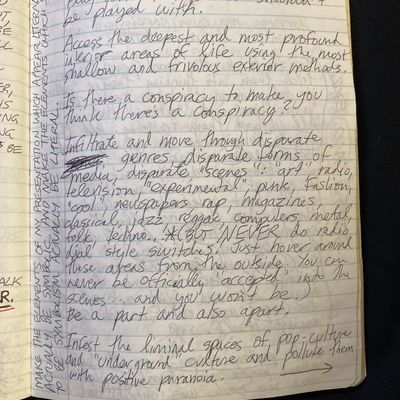 be played with.
Access the deepest and most profound
interior areas of life using the most
shallow and frivolous exterior methods.
Is there a conspiracy to make you
think there's a conspiracy?
Infiltrate and move through disparate
genres, disparate forms of
media, disparate "scenes": "art" radio,
television, "experimental", punk, fashion,
"cool" newspapers rap, magazines,
classical, jazz, reggae, computers, metal,
folk, techno, *(BUT NEVER do radio
dial style switches. Just hover around
these areas from the outside. You can
never be officially "accepted" into the
scenes... and you won't be.)
Be a part and also apart.
Infest the liminal spaces of pop-culture
and "underground" culture and pollute them
with positive paranoia.
MAKE THE ELEMENTS OF MY PRESENTATION WHICH APPEAR LITERAL
ACTUALLY BE SYMBOLIC AND MAKE THE ELEMENTS WHICH
TO BE SYMBOLIC ACTUALLY BE LITERAL
ALK
R.